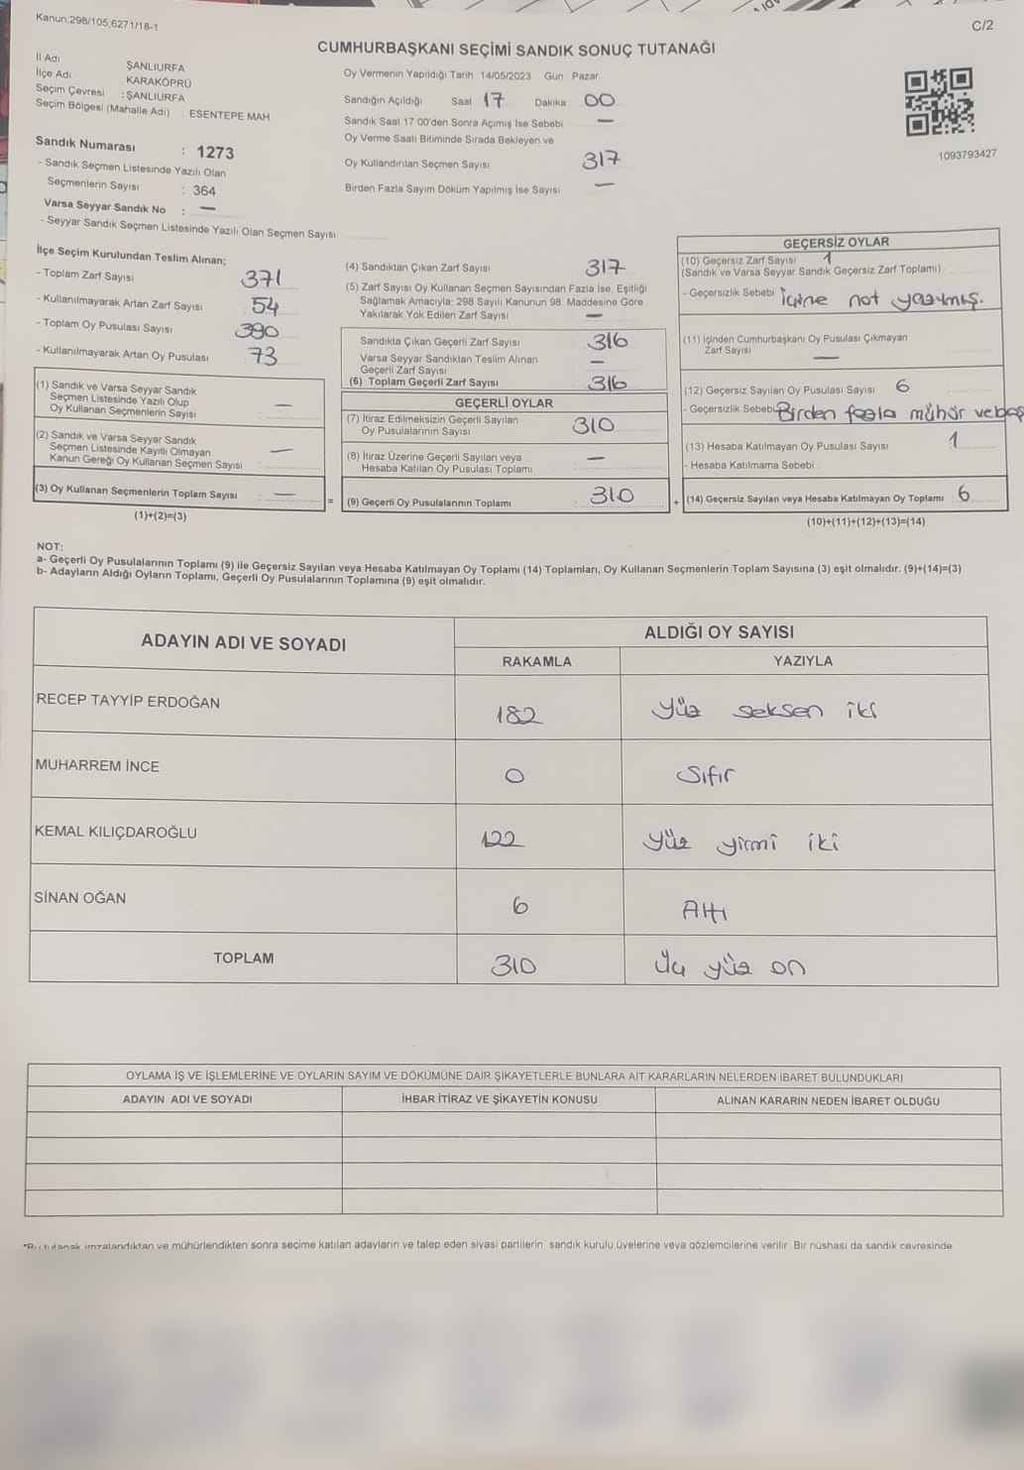 Kanun:298/105,6271/18-1
C/2
CUMHURBAŞKANI SEÇİMİ SANDIK SONUÇ TUTANAĞI
İl Adı ŞANLIURFA
İlçe Adı KARAKÖPRÜ
Seçim Çevresi : ŞANLIURFA
Seçim Bölgesi (Mahalle Adı) ESENTEPE MAH
Sandık Numarası : 1273
- Sandık Seçmen Listesinde Yazılı Olan
Seçmenlerin Sayısı : 364
Varsa Seyyar Sandık No : —
- Seyyar Sandık Seçmen Listesinde Yazılı Olan Seçmen Sayısı
Oy Vermenin Yapıldığı Tarih 14/05/2023 Gün Pazar
Sandığın Açıldığı Saat 17 Dakika 00
Sandık Saat 17:00'den Sonra Açılmış İse Sebebi —
Oy Verme Saati Bitiminde Sırada Bekleyen ve
Oy Kullandırılan Seçmen Sayısı 317
Birden Fazla Sayım Döküm Yapılmış İse Sayısı —
1093793427
İlçe Seçim Kurulundan Teslim Alınan;
- Toplam Zarf Sayısı 371
- Kullanılmayarak Artan Zarf Sayısı 54
- Toplam Oy Pusulası Sayısı 390
- Kullanılmayarak Artan Oy Pusulası 73
(1) Sandık ve Varsa Seyyar Sandık
Seçmen Listesinde Yazılı Olup
Oy Kullanan Seçmenlerin Sayısı —
(2) Sandık ve Varsa Seyyar Sandık
Seçmen Listesinde Kayıtlı Olmayan
Kanun Gereği Oy Kullanan Seçmen Sayısı —
(3) Oy Kullanan Seçmenlerin Toplam Sayısı : —
(1)+(2)=(3)
=
(4) Sandıktan Çıkan Zarf Sayısı 317
(5) Zarf Sayısı Oy Kullanan Seçmen Sayısından Fazla İse, Eşitliği
Sağlamak Amacıyla; 298 Sayılı Kanunun 98. Maddesine Göre
Yakılarak Yok Edilen Zarf Sayısı —
Sandıkta Çıkan Geçerli Zarf Sayısı 316
Varsa Seyyar Sandıktan Teslim Alınan
Geçerli Zarf Sayısı —
(6) Toplam Geçerli Zarf Sayısı 316
GEÇERLİ OYLAR
(7) İtiraz Edilmeksizin Geçerli Sayılan
Oy Pusulalarının Sayısı 310
(8) İtiraz Üzerine Geçerli Sayılan veya
Hesaba Katılan Oy Pusulası Toplamı —
(9) Geçerli Oy Pusulalarının Toplamı 310
+
GEÇERSİZ OYLAR
(10) Geçersiz Zarf Sayısı 1
(Sandık ve Varsa Seyyar Sandık Geçersiz Zarf Toplamı)
- Geçersizlik Sebebi İçine not yazılmış.
(11) İçinden Cumhurbaşkanı Oy Pusulası Çıkmayan
Zarf Sayısı —
(12) Geçersiz Sayılan Oy Pusulası Sayısı 6
- Geçersizlik Sebebi Birden fazla mühür ve
(13) Hesaba Katılmayan Oy Pusulası Sayısı 1
- Hesaba Katılmama Sebebi
(14) Geçersiz Sayılan veya Hesaba Katılmayan Oy Toplamı 6
(10)+(11)+(12)+(13)=(14)
NOT:
a- Geçerli Oy Pusulalarının Toplamı (9) ile Geçersiz Sayılan veya Hesaba Katılmayan Oy Toplamı (14) Toplamları, Oy Kullanan Seçmenlerin Toplam Sayısına (3) eşit olmalıdır. (9)+(14)=(3)
b- Adayların Aldığı Oyların Toplamı, Geçerli Oy Pusulalarının Toplamına (9) eşit olmalıdır.
ADAYIN ADI VE SOYADI ALDIĞI OY SAYISI
RAKAMLA YAZIYLA
RECEP TAYYİP ERDOĞAN 182 Yüz seksen iki
MUHARREM İNCE 0 Sıfır
KEMAL KILIÇDAROĞLU 122 Yüz yirmi iki
SİNAN OĞAN 6 Altı
TOPLAM 310 Üç yüz on
OYLAMA İŞ VE İŞLEMLERİNE VE OYLARIN SAYIM VE DÖKÜMÜNE DAİR ŞİKAYETLERLE BUNLARA AİT KARARLARIN NELERDEN İBARET BULUNDUKLARI
ADAYIN ADI VE SOYADI İHBAR İTİRAZ VE ŞİKAYETİN KONUSU ALINAN KARARIN NEDEN İBARET OLDUĞU
*Bu tutanak imzalandıktan ve mühürlendikten sonra seçime katılan adayların ve talep eden siyasi partilerin sandık kurulu üyelerine veya gözlemcilerine verilir. Bir nüshası da sandık çevresinde